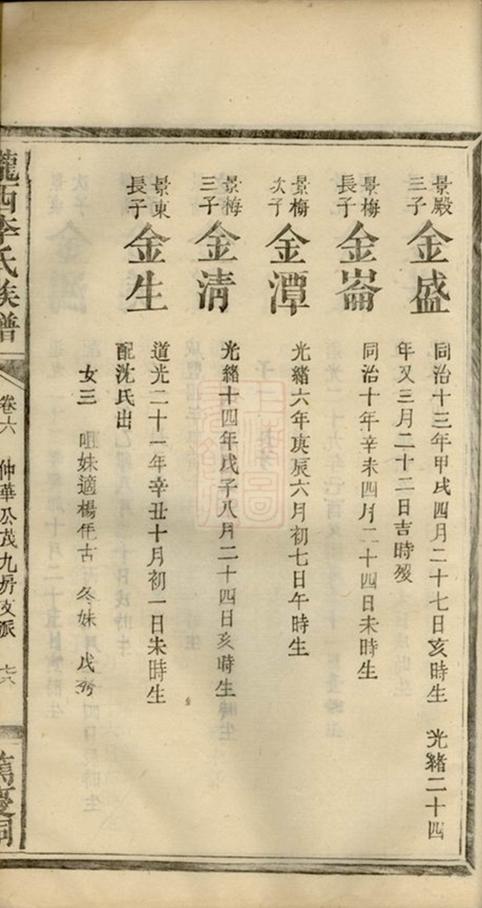 景殿
三子
金盛
同治十三年甲戌四月二十七日亥時生 光緒二十四
年又三月二十二日吉時歿
景梅
長子
金崙
同治十年辛未四月二十四日未時生
景梅
次子
金潭
光緒六年庚辰六月初七日午時生
景梅
三子
金清
光緒十四年戊子八月二十四日亥時生
景東
長子
金生
道光二十一年辛丑十月初一日未時生
配沈氏出
女三 咀妹適楊 古 冬妹 戊秀
隴西李氏族譜
卷六 仲華公茂九房支派
萬慶祠